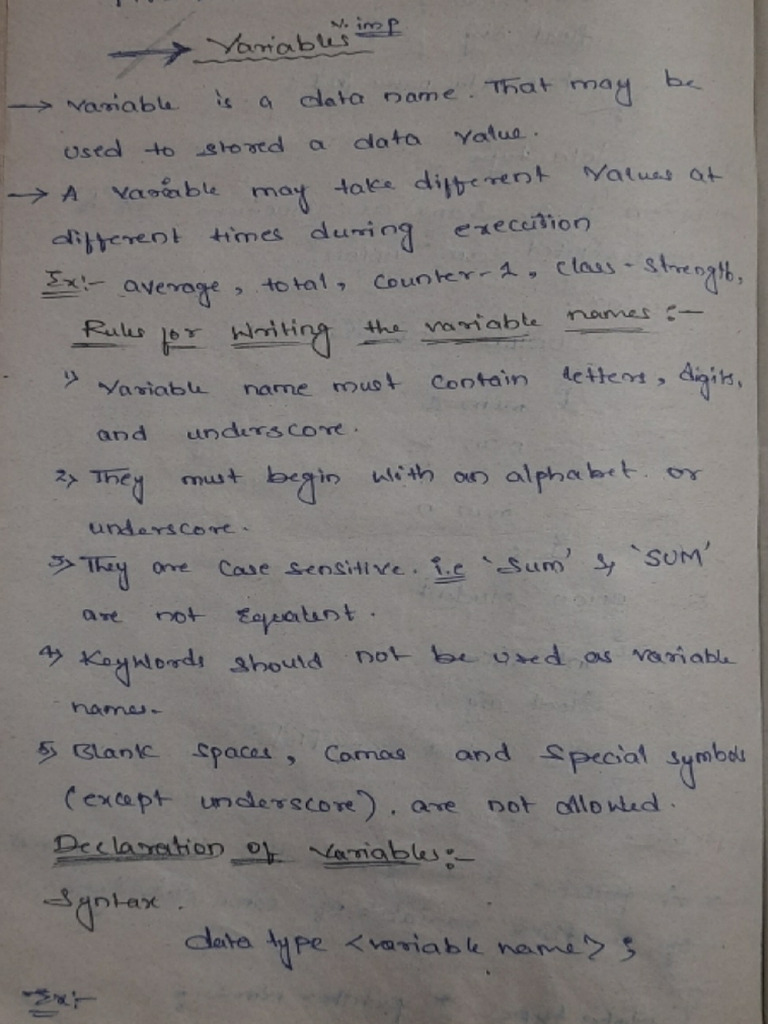 V. imp
→ Variables
→ Variable is a data name. That may be
used to stored a data value.
→ A variable may take different values at
different times during execution
Ex:- average, total, counter-1, class-strength,
Rules for Writing the variable names :-
1) Variable name must contain letters, digits,
and underscore.
2) They must begin with an alphabet. or
underscore.
3) They are case sensitive. i.e 'Sum' & 'SUM'
are not Equalent.
4) Keywords should not be used as variable
names.
5) Blank spaces, Comas and Special symbols
(except underscore). are not allowed.
Declaration of Variables:-
Syntax.
data type <variable name> ;
Ex:-